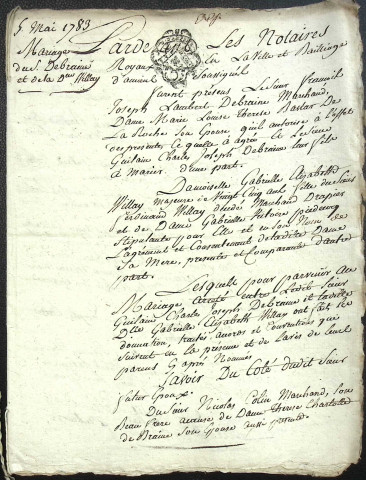 5 Mai 1783
Mariage
du S. Debraine
et de la Dlle Willay
Pardevant Les Notaires
Royaux en la Ville et Bailliage
d'amiens Soussignés
furent présens Le Sieur françois
Joseph Lambert Debraine Marchand,
Dame Marie Louise Therese De
La Roche Son Epouse, qu'il autorise a l'effet
des presentes, le quelle a agréé Le Sieur
Guilain Charles Joseph Debraine leur fils
à marier, d'une part.
Damoiselle Gabrielle Elizabeth
Willay majeure de Vingt Cinq ans fille du Sieur
ferdinand Willay Marchand Drapier
et de Dame Gabrielle
Stipulante pour Elle et en Son Nom de
L'agrément et Consentement de ladite Dame
Sa Mere, presente et Comparante d'autre
part.
Lesquels pour parvenir Au
Mariage arreté Entre Ledit Sieur
Guilain Charles Joseph Debraine et ladite
Dlle Gabrielle Elizabeth Willay ont fait les
donnation, traités, accords et Conventions qui
Suivent en la presence et de L'avis de Leurs
parens Cy après Nommés
Savoir Du Coté dudit Sieur
futur Epoux
Du Sieur Nicolas Colin Marchand, Son
Beau frere accause de Dame therese Charlotte
de Braine Son Epouse aussi presente